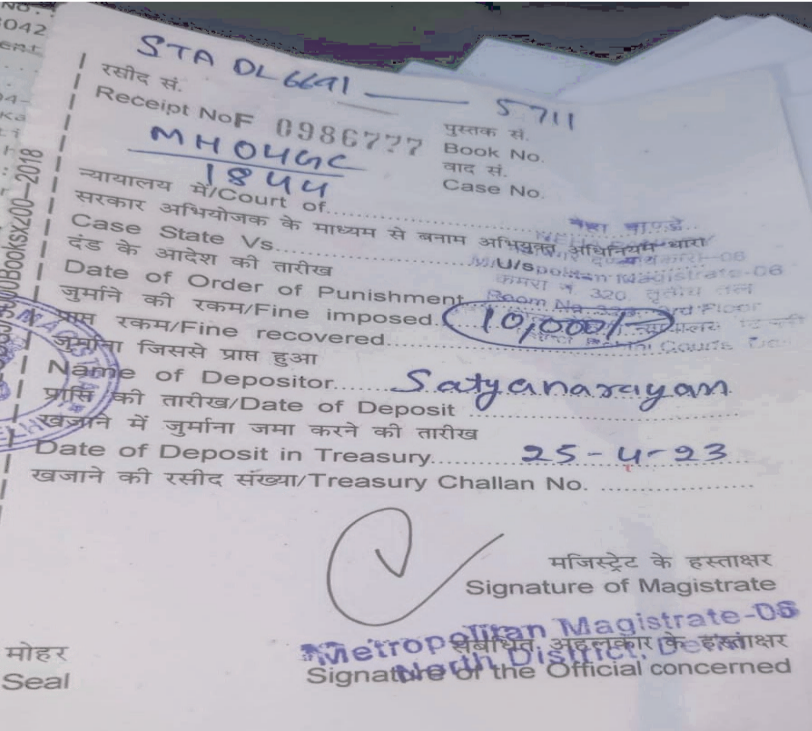 NO.
3042
STA DL 6691 —— 5711
रसीद सं.
Receipt No F 0986777
पुस्तक सं.
Book No.
MH04GC
1844
वाद सं.
Case No.
न्यायालय में/Court of
सरकार अभियोजक के माध्यम से बनाम अभियुक्त अधिनियम धारा
Case State Vs. U/s
दंड के आदेश की तारीख
Date of Order of Punishment
Room No. 320,
जुर्माने की रकम/Fine imposed 10,000/-
प्राप्त रकम/Fine recovered
जुर्माना जिससे प्राप्त हुआ
Name of Depositor Satyanarayan
प्राप्ति की तारीख/Date of Deposit
खज़ाने में जुर्माना जमा करने की तारीख
Date of Deposit in Treasury 25-4-23
खजाने की रसीद संख्या/Treasury Challan No.
मजिस्ट्रेट के हस्ताक्षर
Signature of Magistrate
Metropolitan Magistrate-06
North District, Delhi
संबंधित अहलकार के हस्ताक्षर
Signature of the Official concerned
मोहर
Seal